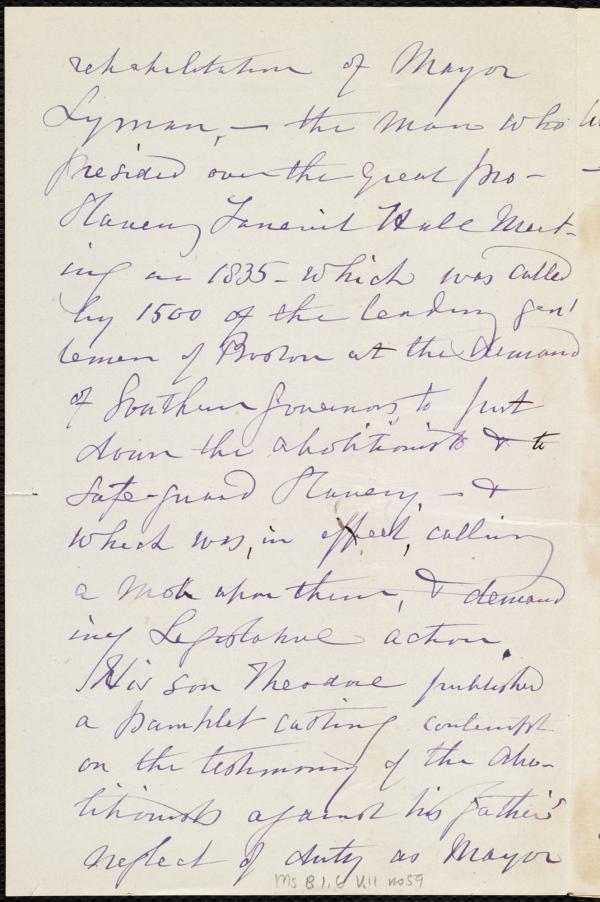 rehabilitation of Mayor
Lyman, — the man who
presided over the great pro-
Slavery Faneuil Hall Meet-
ing in 1835 - which was called
by 1500 of the leading gen'
lemen of Boston at the demand
of Southern Governors, to put
down the abolitionists & to
safe-guard Slavery — &
which was, in effect, calling
a mob upon them, & demand
ing Legislative action.
His son Theodore published
a pamplet casting contempt
on the testimony of the abo-
litionists against his father's
neglect of duty as Mayor
Ms B 1.6 V.11 no 59